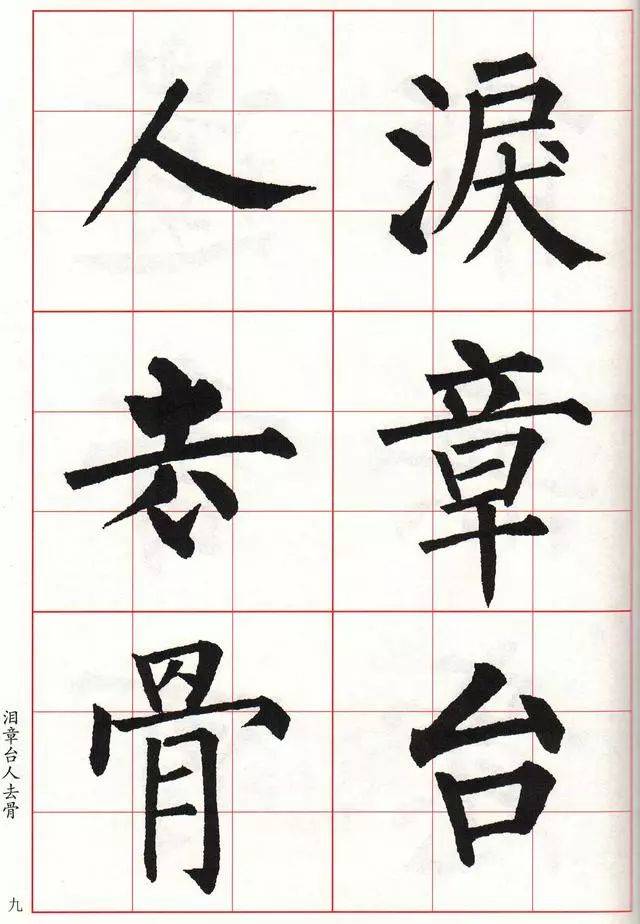 淚章台
人去骨
泪章台人去骨
九